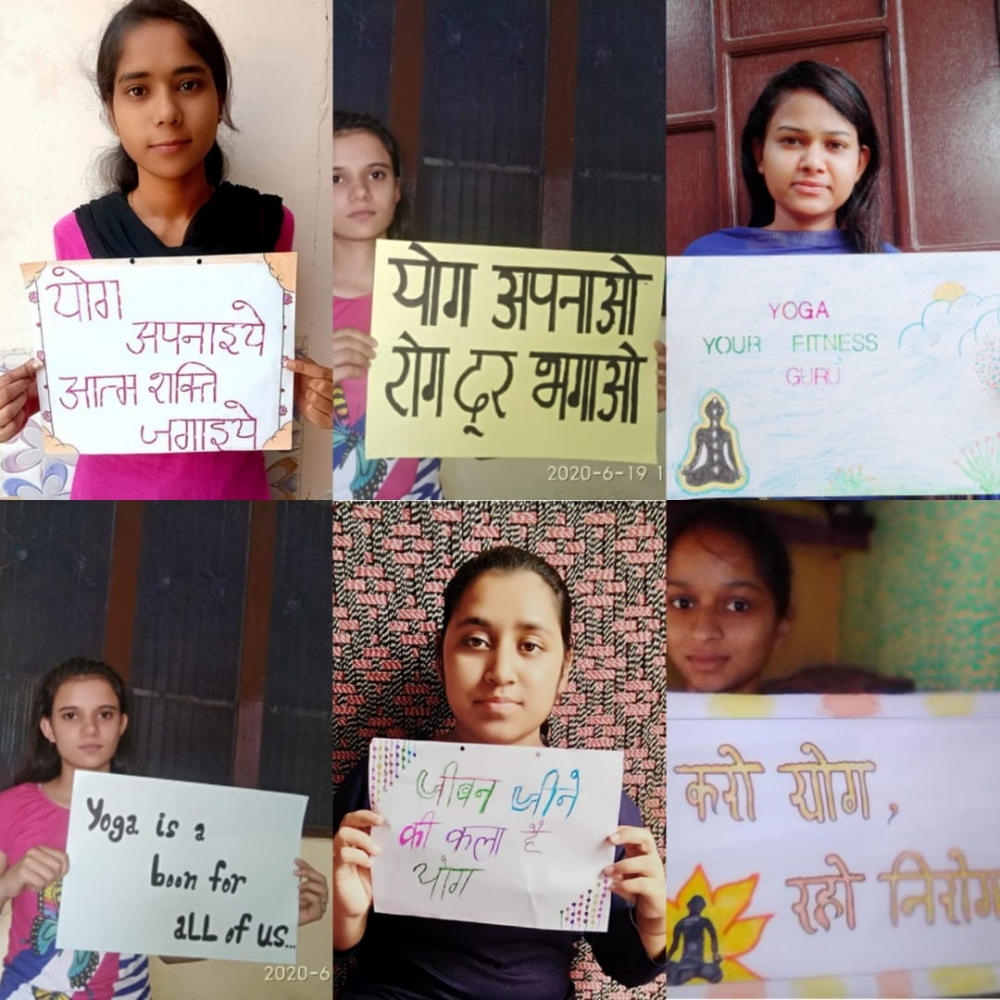 योग
अपनाइये
आत्म शक्ति
जगाइये
योग अपनाओ
रोग दूर भगाओ
2020-6-19 1
YOGA
YOUR FITNESS
GURU
Yoga is a
boon for
aLL of us...
2020-6
जीबन जीने
की कला है
योग
करो योग,
रहो निरोग